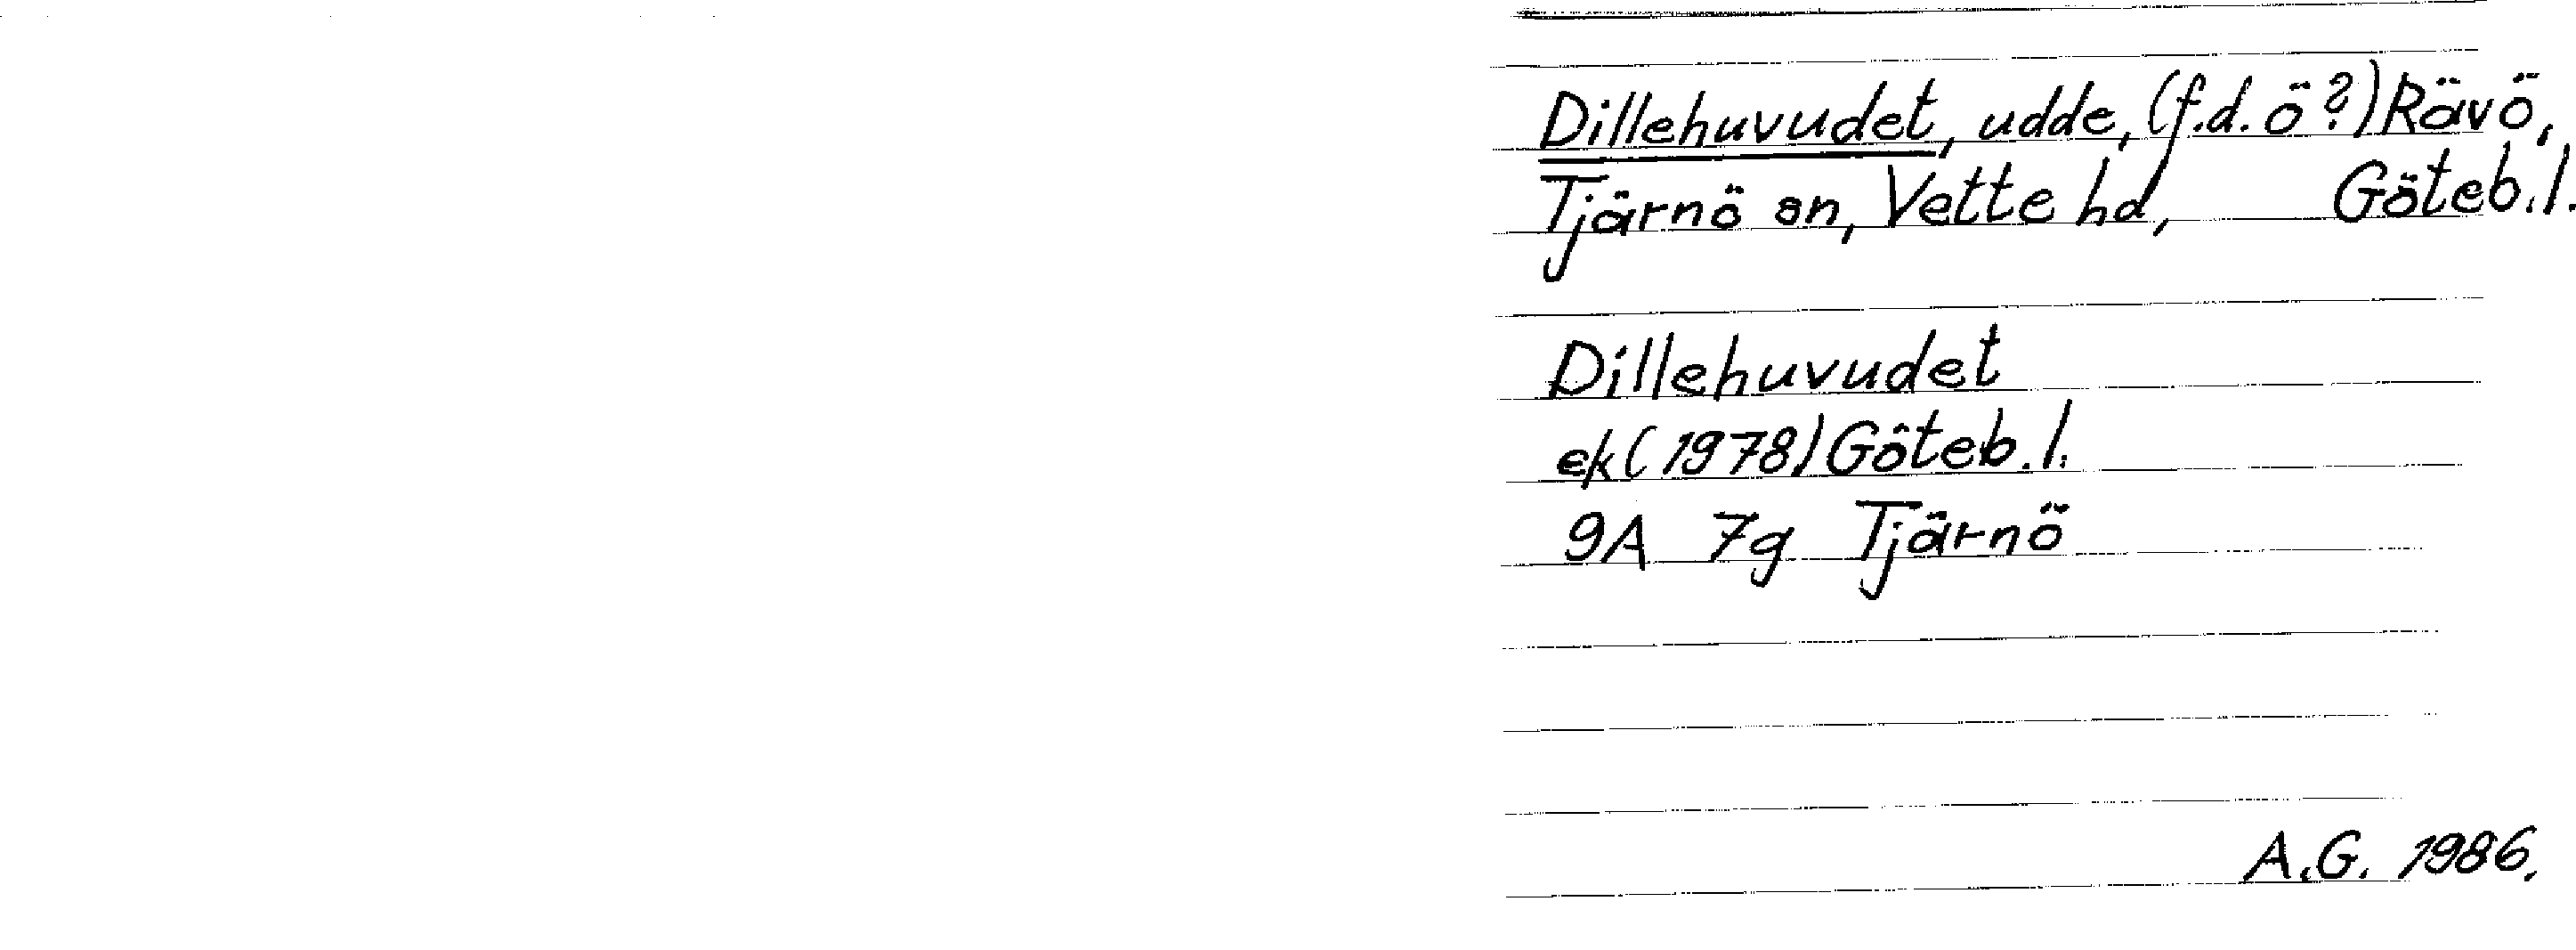 Dillehuvudet, udde, (f.d. ö?) Rävö,
Tjärnö sn, Vette hd, Göteb.l.
Dillehuvudet
ek (1978) Göteb.l.
9A 7g Tjärnö
A.G. 1986.